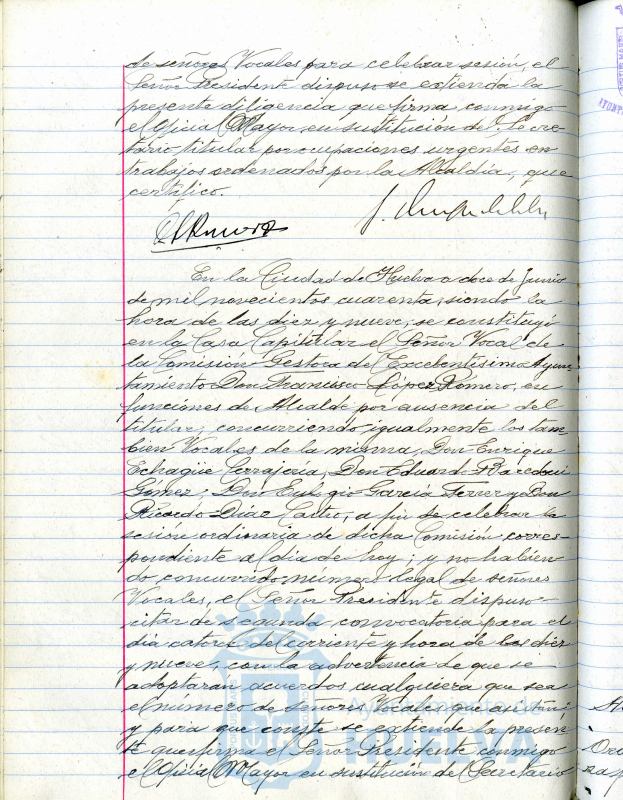 de señores Vocales para celebrar sesión, el
Señor Presidente dispuso se extienda la
presente diligencia que firma conmigo
el Oficial Mayor, en sustitución del Secre-
tario titular por ocupaciones urgentes en
trabajos ordenados por la Alcaldía, que
certifico.
En la Ciudad de Huelva a doce de Junio
de mil novecientos cuarenta, siendo la
hora de las diez y nueve, se constituyó
en la Casa Capitular el Señor Vocal de
la Comisión Gestora del Excelentísimo Ayun-
tamiento Don Francisco López Romero, en
funciones de Alcalde por ausencia del
titular, concurriendo igualmente los tam-
bien Vocales de la misma, Don Enrique
Echagüe Don Eduardo
Gómez, Don Eulogio García Ferrer y Don
Ricardo Díaz Castro, a fin de celebrar la
sesión ordinaria de dicha Comisión corres-
pondiente al día de hoy; y no habien-
do concurrido número legal de señores
Vocales, el Señor Presidente dispuso
citar de segunda convocatoria para el
día catorce del corriente y hora de las diez
y nueve, con la advertencia de que se
adoptaran acuerdos cualquiera que sea
el número de señores Vocales que asistan;
y para que conste se extiende la presen-
te que firma el Señor Presidente conmigo
el Oficial Mayor en sustitución del Secretario
Ayuntamiento de
HUELVA